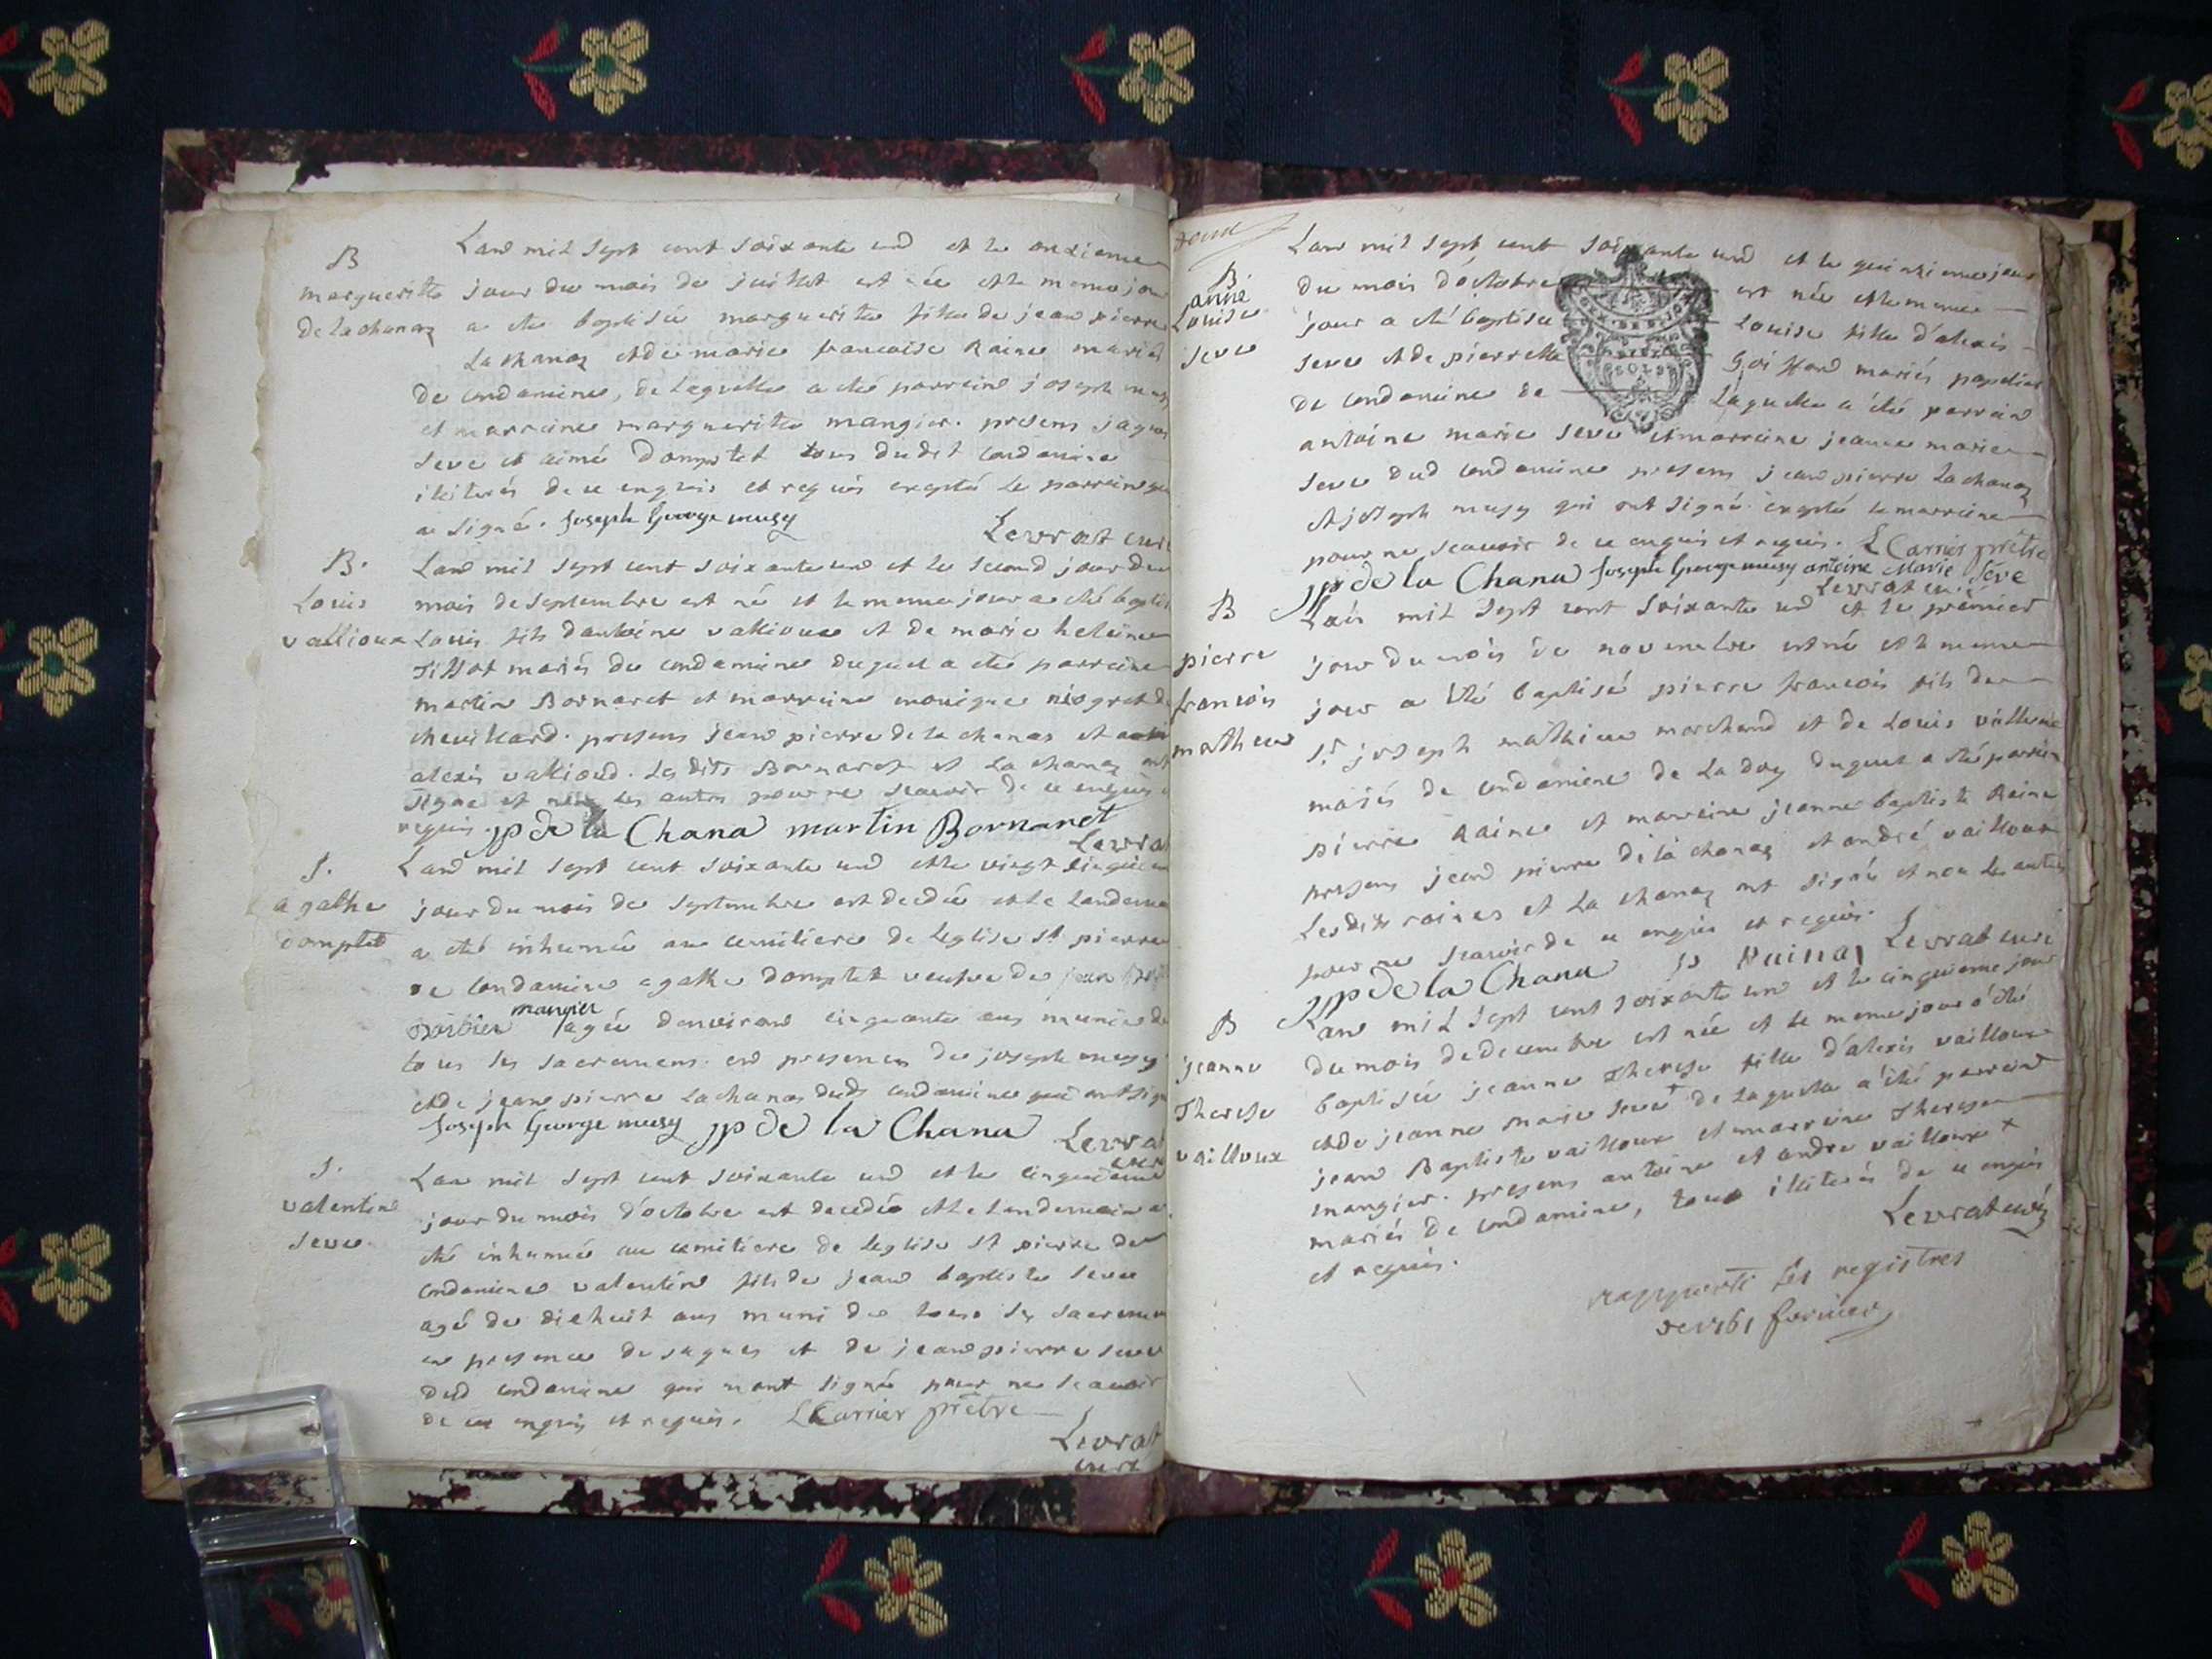 B
margueritte
de lachanaz
Lan mil sept cent soixante un et le onzieme
jour du mois de juillet est née et le meme jour
a ete baptisée margueritte fille de jean pierre
Lachanaz et de marie francoise Raine mariés
de condamine, de laquelle a été parrein joseph musy
et marreine margueritte mangier. presens jaques
seve et aimé Domptet tous dudit condamine
illiterés de ce enquis et requis excepté le parrein qui
a signé. Joseph George musy
Levrat curé
B.
Louis
vallioux
Lan mil sept cent soixante un et le second jour du
mois de septembre est né et le meme jour a été baptisé
Louis fils dantoine vallioux et de marie heleine
Tissot mariés de condamine duquel a été parrein
martin Bornaret et marreine monique niogret de
chevillard. presens jean pierre de la chanas et
alexis vallioud. Lesdits Bornaret et la chanaz ont
signé et non les autres pour ne scavoir de ce enquis et
requis. jp de la Chana martin Bornaret
Levrat
S.
agathe
domptet
Lan mil sept cent soixante un et le vingt cinquieme
jour du mois de septembre est decedée et le landemain
a été inhumée au cemitiere de leglise st pierre
de condamine agathe domptet veufve de jean
mangier
agée denviron cinquante ans munie de
tous les sacremens. en presence de joseph musy
et de jean pierre lachanas dudt condamine qui ont signé
Joseph George musy jp de la Chana Levrat
curé
S.
valentin
seve
Lan mil sept cent soixante un et le cinquieme
jour du mois d'octobre est decedé et le landemain a
été inhumé au cemitiere de leglise st pierre de
condamine valentin fils de jean baptiste seve
agé de diehuit ans muni de tous les sacremens
en presence de jaques et de jean pierre seve
dud condamine qui n'ont signé pour ne scavoir
de ce enquis et requis. L Carrier prêtre
Levrat
curé
B.
anne
Louise
seve
Lan mil sept cent soixante un et le quinzieme jour
du mois d'octobre est née et le meme
jour a été baptisée Louise fille d'alexis
seve et de pierrette Goiffard mariés
de condamine de laquelle a été parrein
antoine marie seve et marreine jeanne marie
seve dud condamine presens jean pierre lachanaz
et joseph musy qui ont signé excepté la marreine
pour ne scavoir de ce enquis et requis. L Carrier prêtre
jp de la Chana Joseph George musy antoine Marie Séve
Levrat cu.
B
pierre
francois
matheu
Lan mil sept cent soixante un et le premier
jour du mois de novembre est né et le meme
jour a été baptisé pierre francois fils de
sr joseph mathieu marchand et de Louis
mariés de condamine de la doy duquel a été parrein
pierre Raine et marreine jeanne baptiste Raine
presens jean pierre de la chanaz et andré vailloux
Lesdits raines et la chanaz ont signé et non les autres
pour ne scavoir de ce enquis et requis.
jp de la Chana Levrat curé
B
jeanne
Therese
vailloux
Lan mil sept cent soixante un et le cinquieme jour
du mois de decembre est née et le meme jour a été
baptisée jeanne Therese fille d'alexis vailloux
et de jeanne marie seve + de laquelle a été parrein
jean Baptiste vailloux et marreine Therese
mangier. presens antoine et andre vailloux +
mariés de condamine, tous illiterés de ce enquis
et requis.
Levrat curé
rapporté les registres
de 1761